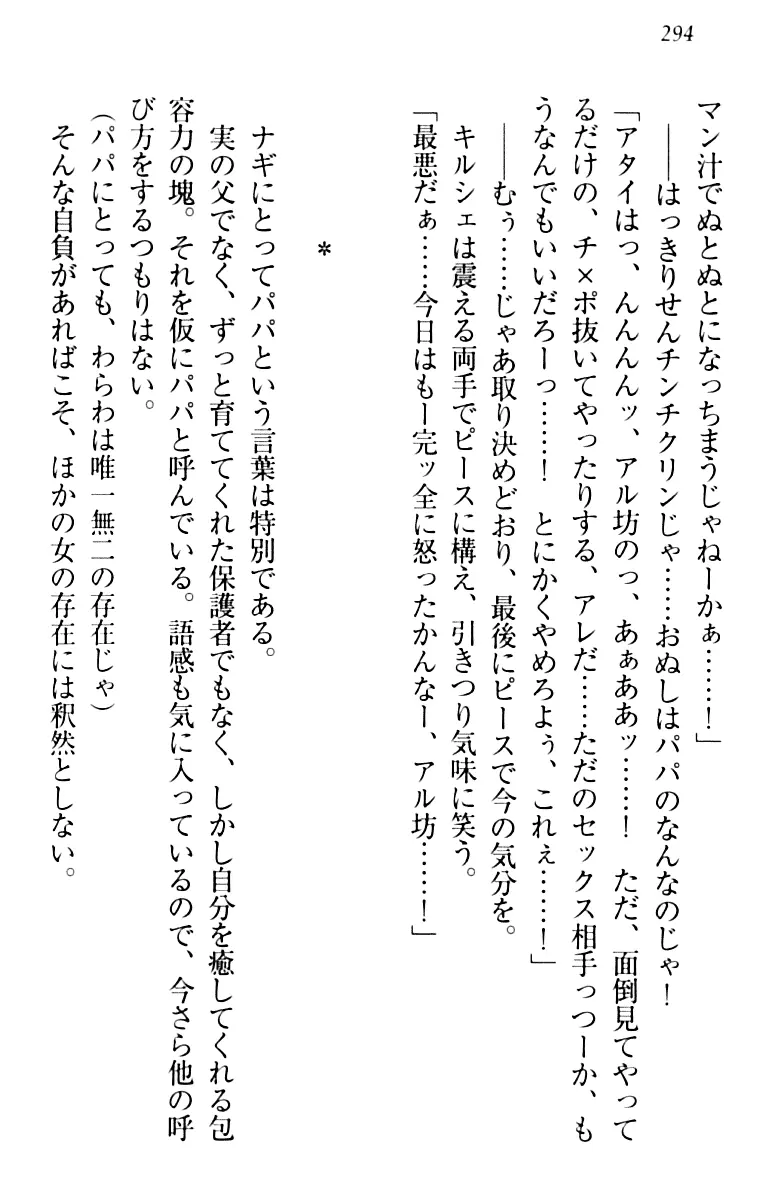 294
マン汁でぬとぬとになっちまうじゃねーかぁ……！」
――はっきりせんチンチクリンじゃ……おぬしはパパのなんなのじゃ！
「アタイはっ、んんんんッ、アル坊のっ、あぁああッ……！　ただ、面倒見てやって
るだけの、チ×ポ抜いてやったりする、アレだ……ただのセックス相手っつーか、も
うなんでもいいだろーっ……！　とにかくやめろよぅ、これぇ……！」
――むぅ……じゃあ取り決めどおり、最後にピースで今の気分を。
キルシェは震える両手でピースに構え、引きつり気味に笑う。
「最悪だぁ……今日はもー完ッ全に怒ったかんなー、アル坊……！」
＊
ナギにとってパパという言葉は特別である。
実の父でなく、ずっと育ててくれた保護者でもなく、しかし自分を癒してくれる包
容力の塊。それを仮にパパと呼んでいる。語感も気に入っているので、今さら他の呼
び方をするつもりはない。
（パパにとっても、わらわは唯一無二の存在じゃ）
そんな自負があればこそ、ほかの女の存在には釈然としない。